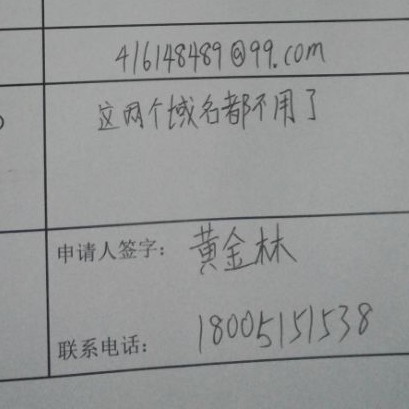 416148489@99.com
这两个域名都不用了
申请人签字：黄金林
联系电话：18005151538